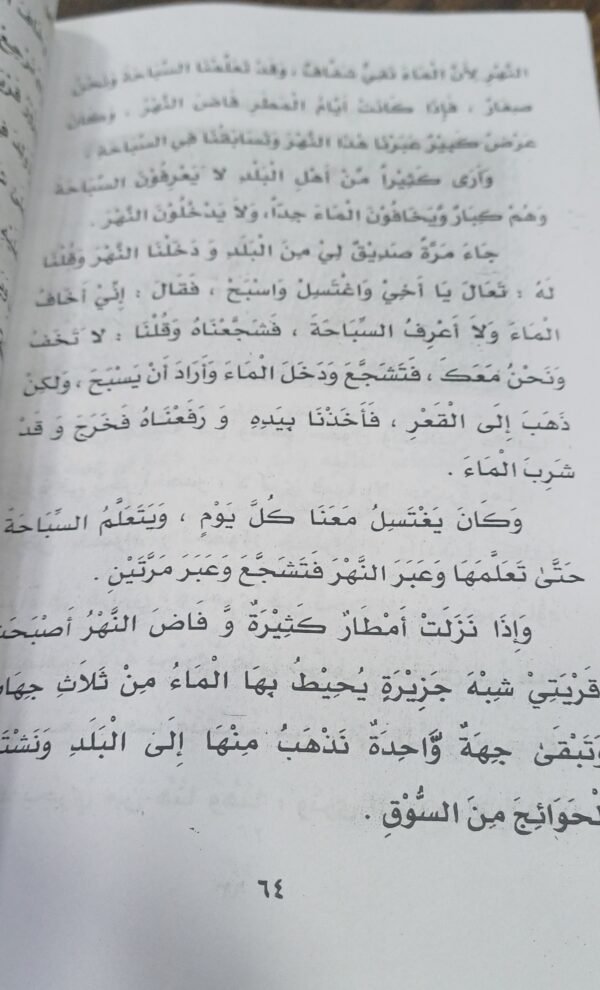 النَّهْرِ لِأَنَّ الْمَاءَ نَقِيٌّ شَفَّافٌ ، وَقَدْ تَعَلَّمْنَا السِّبَاحَةَ وَنَحْنُ
صِغَارٌ ، فَإِذَا كَانَتْ أَيَّامُ الْمَطَرِ فَاضَ النَّهْرُ ، وَكَانَ
عَرْضٌ كَبِيْرٌ عَبَرْنَا هٰذَا النَّهْرَ وَتَسَابَقْنَا فِي السِّبَاحَةِ .
وَأَرَى كَثِيْراً مِّنْ أَهْلِ الْبَلَدِ لَا يَعْرِفُوْنَ السِّبَاحَةَ
وَهُمْ كِبَارٌ وَّيَخَافُوْنَ الْمَاءَ جِدّاً، وَلَا يَدْخُلُوْنَ النَّهْرَ .
جَاءَ مَرَّةً صَدِيْقٌ لِيْ مِنَ الْبَلَدِ وَ دَخَلْنَا النَّهْرَ وَقُلْنَا
لَهُ : تَعَالَ يَا أَخِيْ وَاغْتَسِلْ وَاسْبَحْ ، فَقَالَ : إِنِّيْ أَخَافُ
الْمَاءَ وَلَا أَعْرِفُ السِّبَاحَةَ ، فَشَجَّعْنَاهُ وَقُلْنَا : لَا تَخَفْ
وَنَحْنُ مَعَكَ ، فَتَشَجَّعَ وَدَخَلَ الْمَاءَ وَأَرَادَ أَنْ يَسْبَحَ ، وَلٰكِنْ
ذَهَبَ إِلَى الْقَعْرِ ، فَأَخَذْنَا بِيَدِهِ وَ رَفَعْنَاهُ فَخَرَجَ وَ قَدْ
شَرِبَ الْمَاءَ .
وَكَانَ يَغْتَسِلُ مَعَنَا كُلَّ يَوْمٍ ، وَيَتَعَلَّمُ السِّبَاحَةَ
حَتَّىٰ تَعَلَّمَهَا وَعَبَرَ النَّهْرَ فَتَشَجَّعَ وَعَبَرَ مَرَّتَيْنِ .
وَإِذَا نَزَلَتْ أَمْطَارٌ كَثِيْرَةٌ وَّ فَاضَ النَّهْرُ أَصْبَحَتْ
قَرْيَتِيْ شِبْهَ جَزِيْرَةٍ يُحِيْطُ بِهَا الْمَاءُ مِنْ ثَلَاثِ جِهَاتٍ
وَتَبْقَىٰ جِهَةٌ وَّاحِدَةٌ نَذْهَبُ مِنْهَا إِلَى الْبَلَدِ
الْحَوَائِجَ مِنَ السُّوْقِ .
٦٤